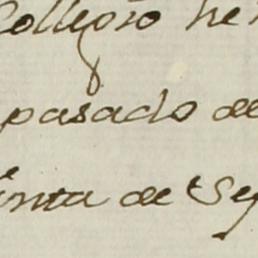 Collegio he
pasado de
inta de Se